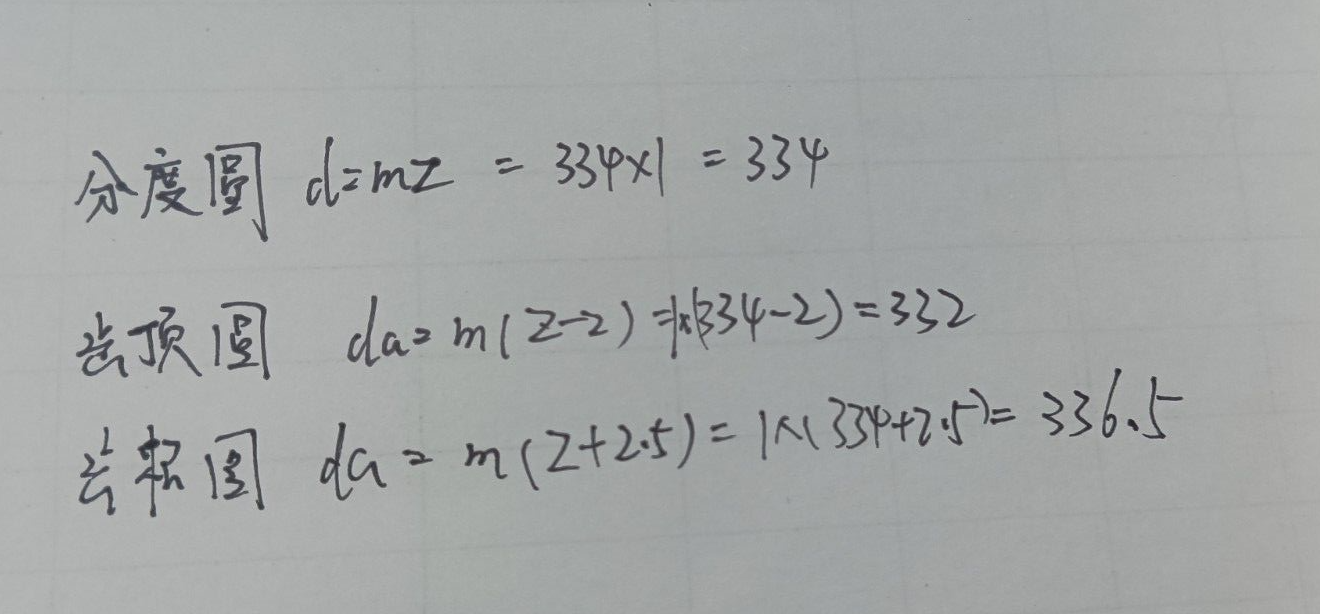 分度圆 d=mz = 334×1 = 334
齿顶圆 da = m(z-2) = 1×(334-2) = 332
齿根圆 da = m(z+2.5) = 1×(334+2.5) = 336.5